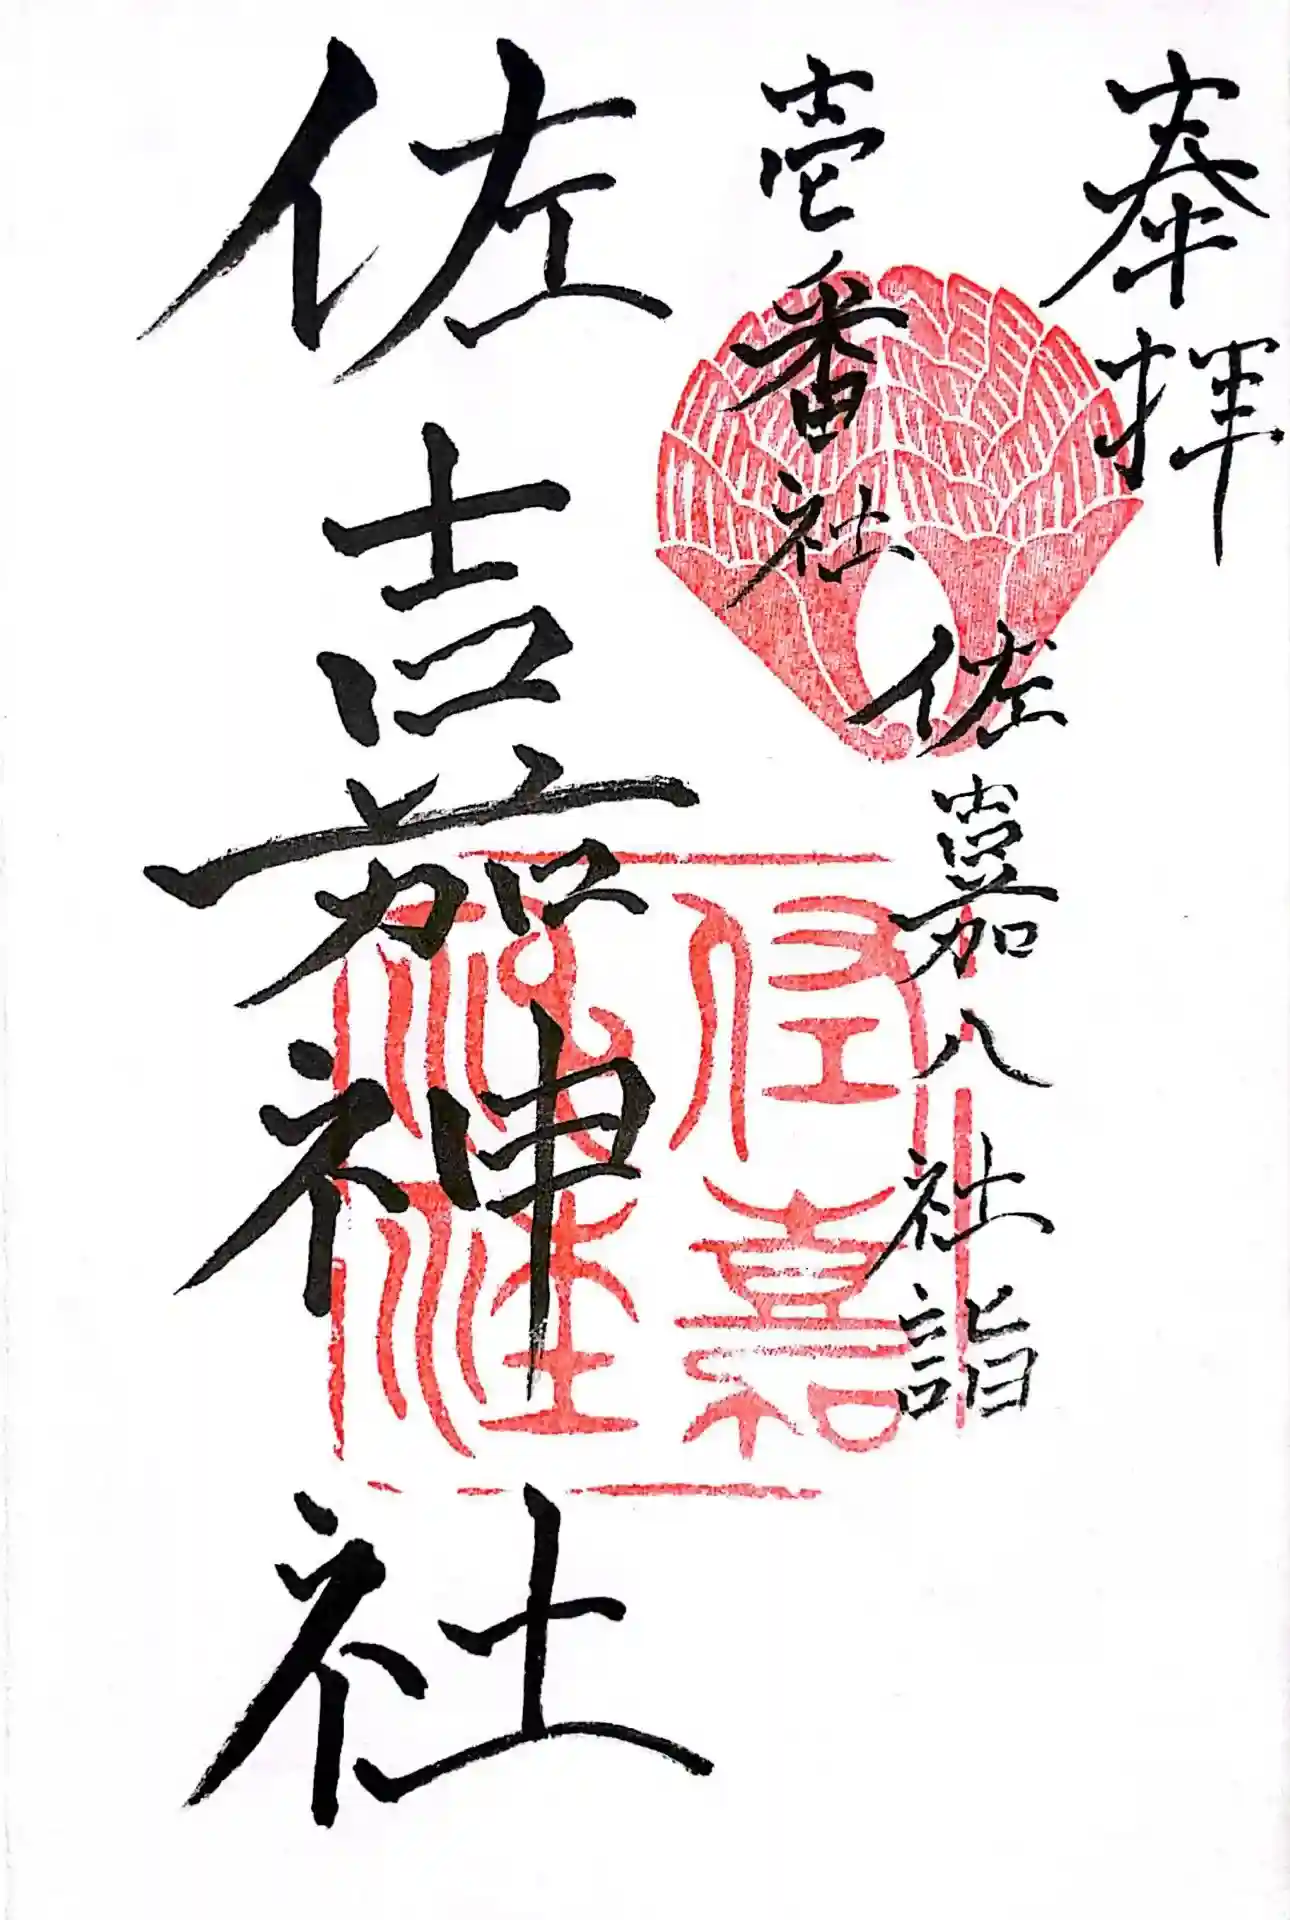 奉拝
佐嘉八社詣
壱番社
佐嘉神社
佐嘉
神社